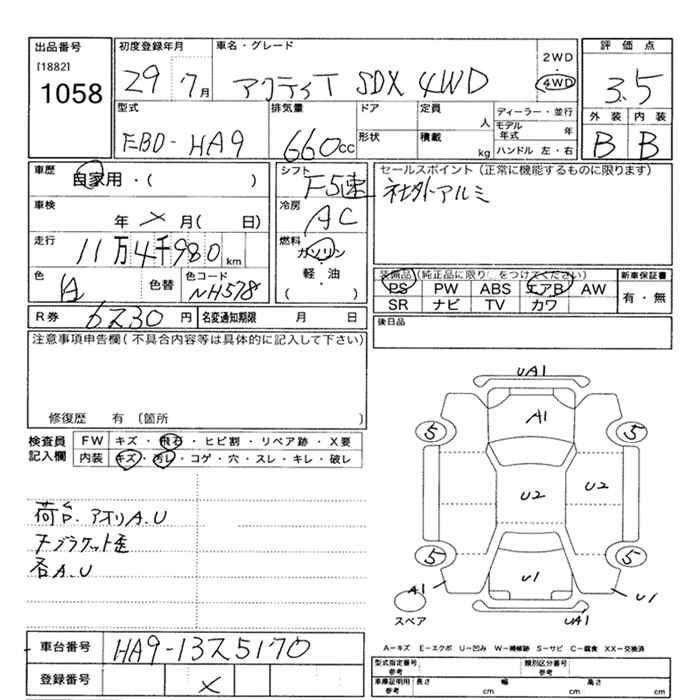 出品番号
[1882]
1058
初度登録年月
29 7月
車名・グレード
アクティT SDX 4WD
2WD
・
4WD
評価点
3.5
外装 内装
B B
型式
EBD-HA9
排気量
660cc
ドア
形状
定員
人
積載
kg
ディーラー・並行
モデル年式 年
ハンドル 左・右
車歴
自家用・( )
車検
年 × 月( 日)
走行
11万4千980 km
色
白
色替
色コード
NH578
シフト
F5速
冷房
AC
燃料
ガソリン
・
軽・油
( )
セールスポイント(正常に機能するものに限ります)
社外アルミ
装備品(純正品に限り○をつけてください)
PS PW ABS エアB AW
SR ナビ TV カワ
新車保証書
有・無
R券 6730 円
名変通知期限 月 日
後日品
注意事項申告欄(不具合内容等は具体的に記入して下さい)
修復歴 有(箇所 )
検査員
記入欄
FW キズ・飛石・ヒビ割・リペア跡・X要
内装 キズ・汚レ・コゲ・穴・スレ・キレ・破レ
荷台.アオリA.U
各A.U
UA1
A1
5 5
U2 U2
5 5
U1
A1
U1
UA1
スペア
車台番号 HA9-1325170
登録番号 ×
A-キズ E-エクボ U-凹み W-補修跡 S-サビ C-腐食 XX-交換済
型式指定番号
参考
類別区分番号
参考
車庫証明用
参考
長さ cm
幅 cm
高さ cm